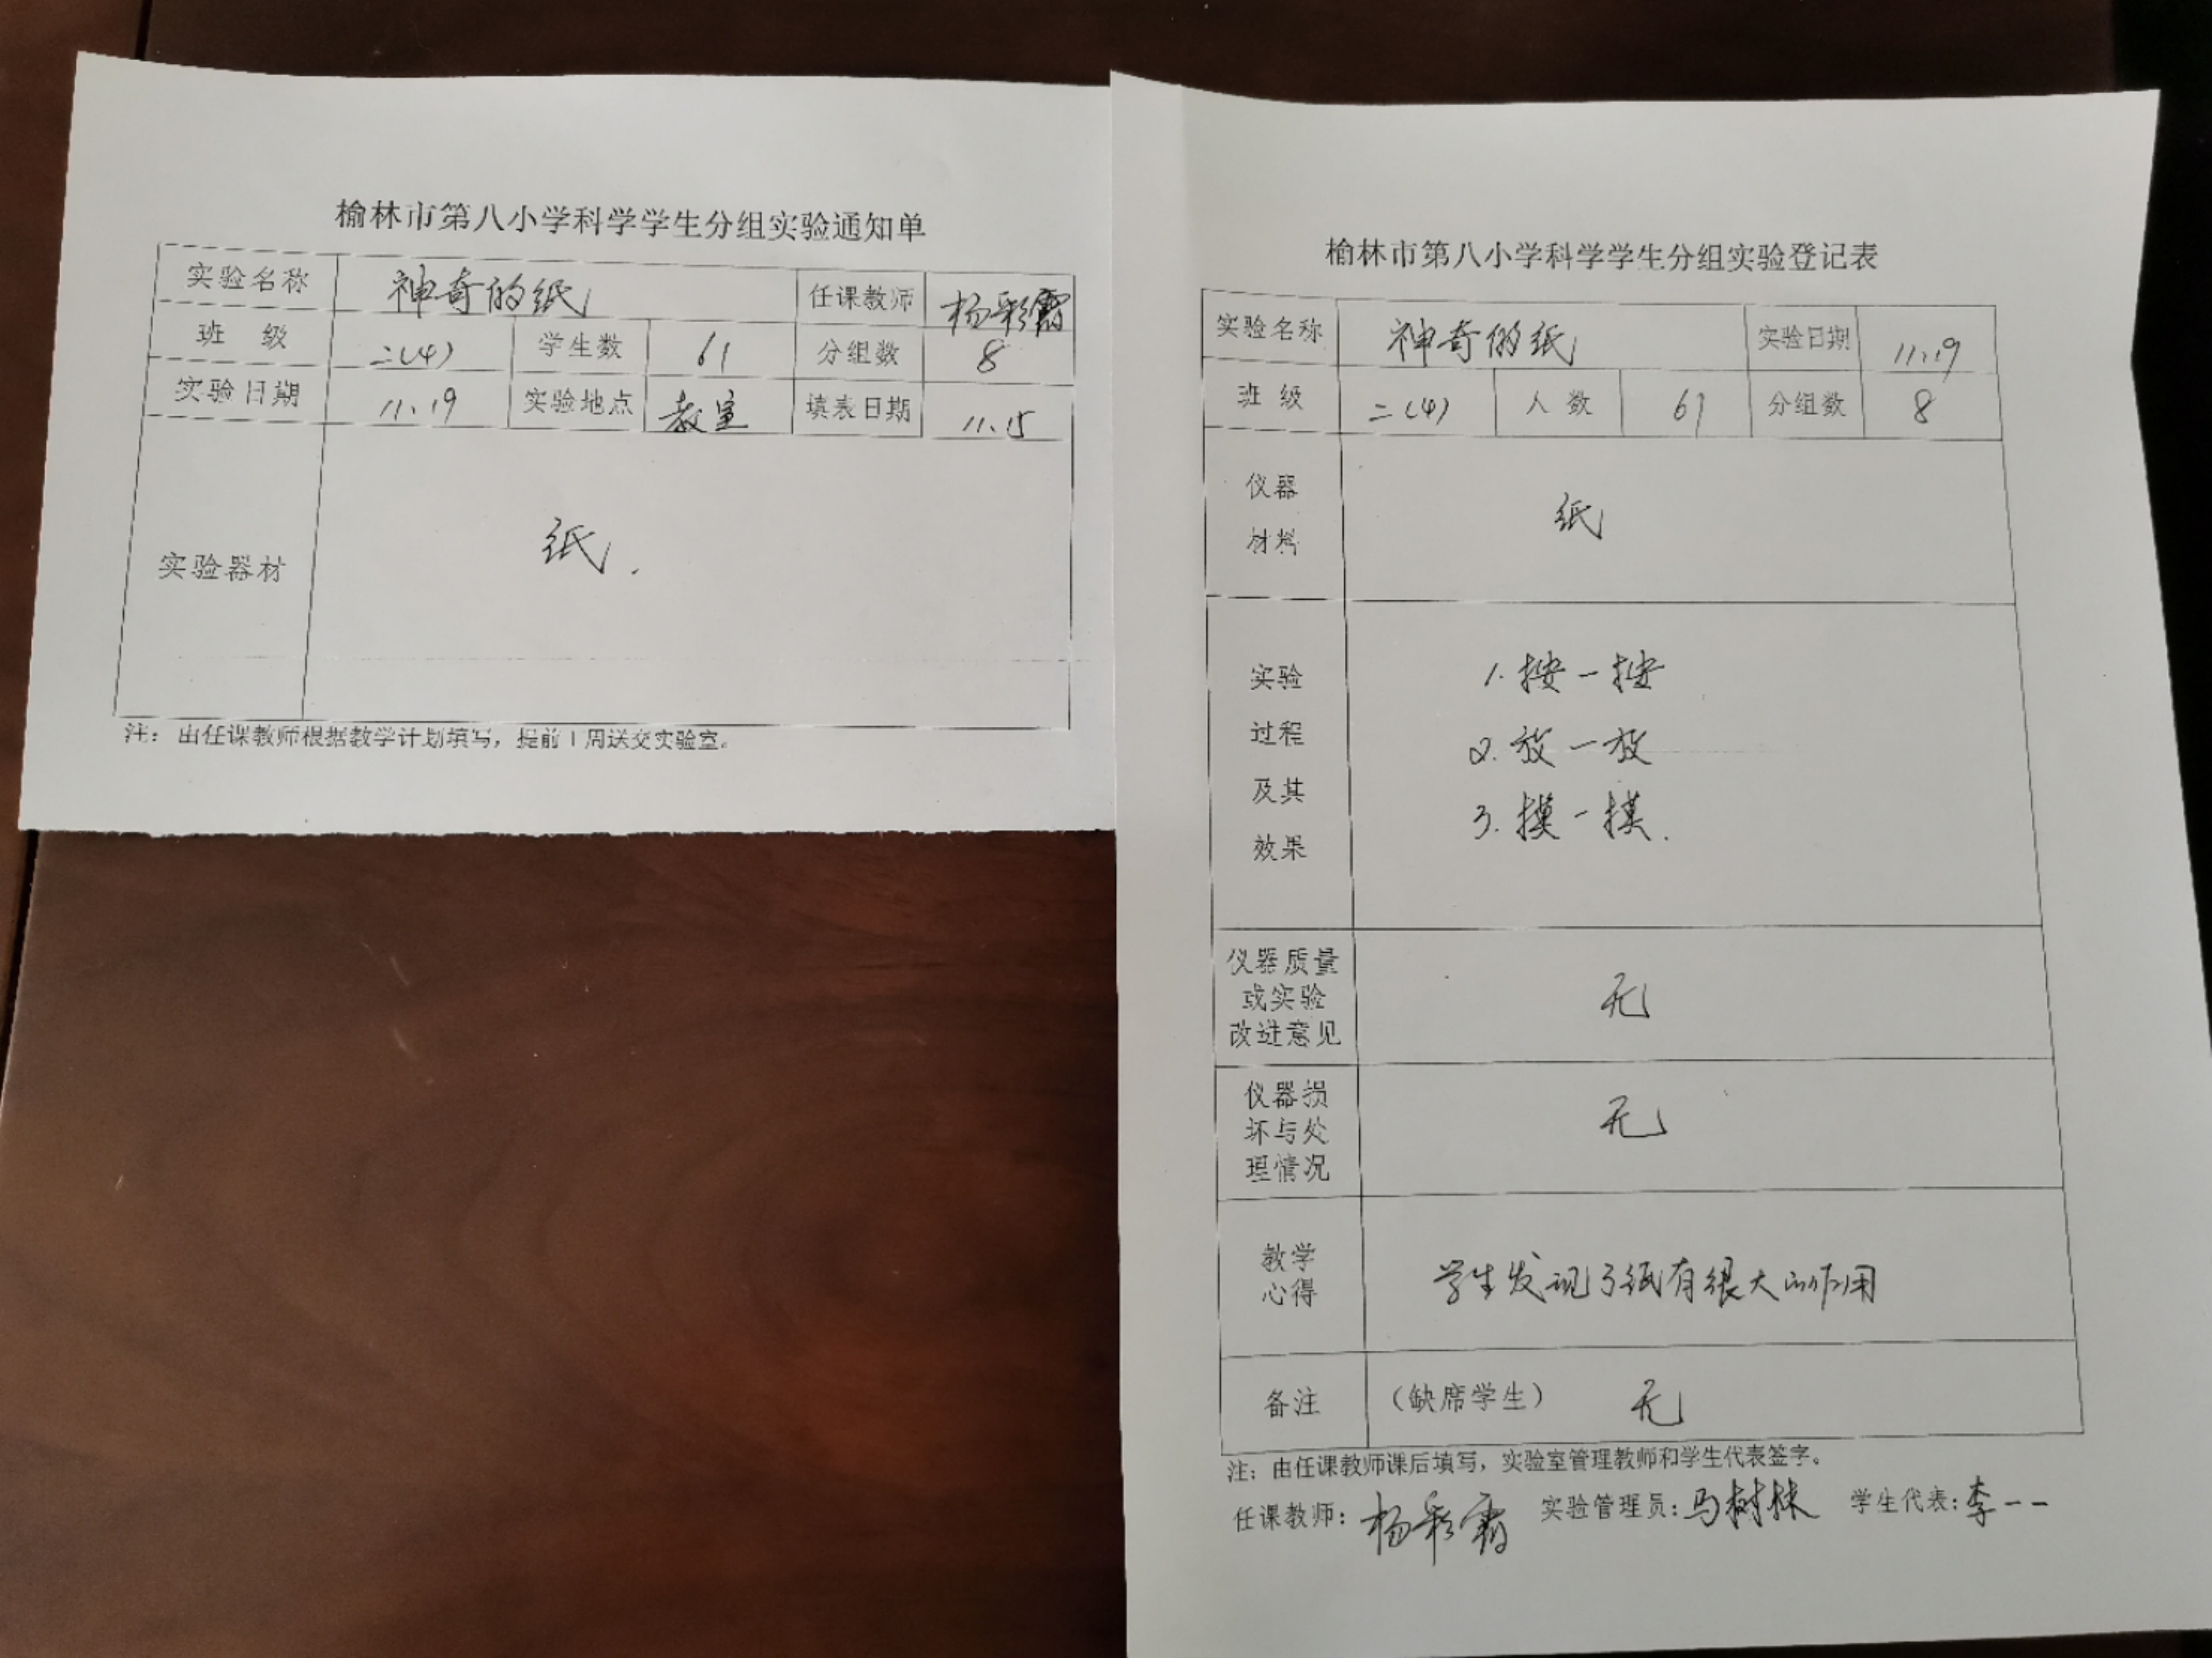 榆林市第八小学科学学生分组实验通知单
实验名称 神奇的纸 任课教师 杨彩霞
班 级 二(4) 学生数 61 分组数 8
实验日期 11.19 实验地点 教室 填表日期 11.15
实验器材 纸.
注：由任课教师根据教学计划填写，提前1周送交实验室。
榆林市第八小学科学学生分组实验登记表
实验名称 神奇的纸 实验日期 11.19
班 级 二(4) 人 数 61 分组数 8
仪器
材料
纸
实验
过程
及其
效果
1. 按一按
2. 放一放
3. 摸一摸.
仪器质量
或实验
改进意见
无
仪器损
坏与处
理情况
无
教学
心得
学生发现了纸有很大的作用
备注 （缺席学生） 无
注：由任课教师课后填写，实验室管理教师和学生代表签字。
任课教师：杨彩霞 实验管理员：马树林 学生代表：李一一